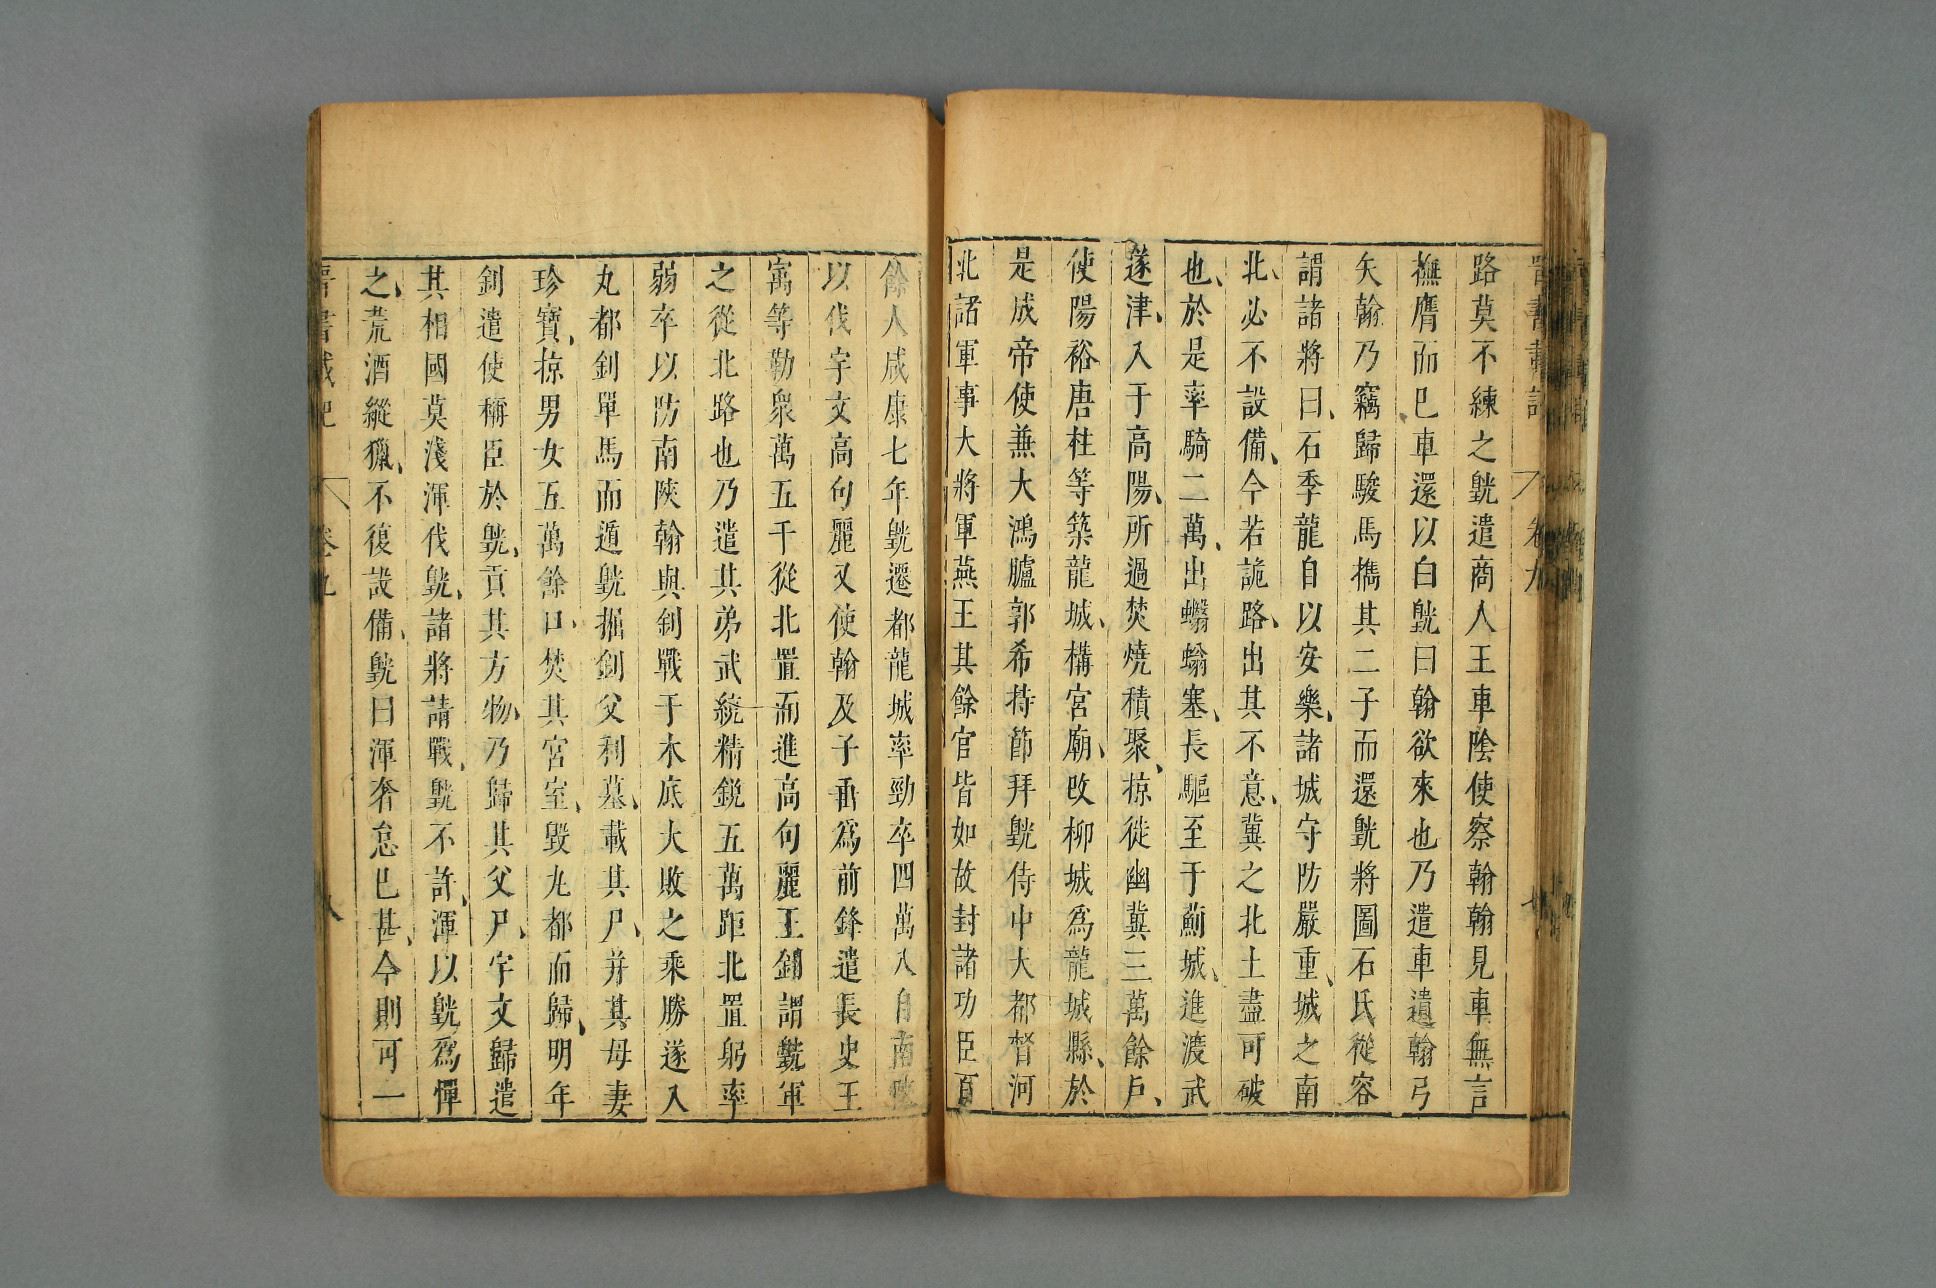 晉書載記 卷九 七
路莫不練之皝遣商人王車陰使察翰翰見車無言
撫膺而已車還以白皝曰翰欲來也乃遣車遺翰弓
矢翰乃竊歸駿馬擕其二子而還皝將圖石氏從容
謂諸將曰石季龍自以安樂諸城守防嚴重城之南
北必不設備今若詭路出其不意冀之北土盡可破
也於是率騎二萬出蠮螉塞長驅至于薊城進渡武
遂津入于高陽所過焚燒積聚掠徙幽冀三萬餘戶
使陽裕唐柱等築龍城構宮廟改柳城爲龍城縣於
是成帝使兼大鴻臚郭希持節拜皝侍中大都督河
北諸軍事大將軍燕王其餘官皆如故封諸功臣百
餘人咸康七年皝遷都龍城率勁卒四萬入自南陝
以伐宇文高句麗又使翰及子垂爲前鋒遣長史王
寓等勒衆萬五千從北置而進高句麗王釗謂皝軍
之從北路也乃遣其弟武統精銳五萬距北置躬率
弱卒以防南陝翰與釗戰于木底大敗之乘勝遂入
丸都釗單馬而遁皝掘釗父利墓載其尸并其母妻
珍寶掠男女五萬餘口焚其宮室毀丸都而歸明年
釗遣使稱臣於皝貢其方物乃歸其父尸宇文歸遣
其相國莫淺渾伐皝諸將請戰皝不許渾以皝爲憚
之荒酒縱獵不復設備皝曰渾奢怠已甚今則可一
晉書載記 卷九 八